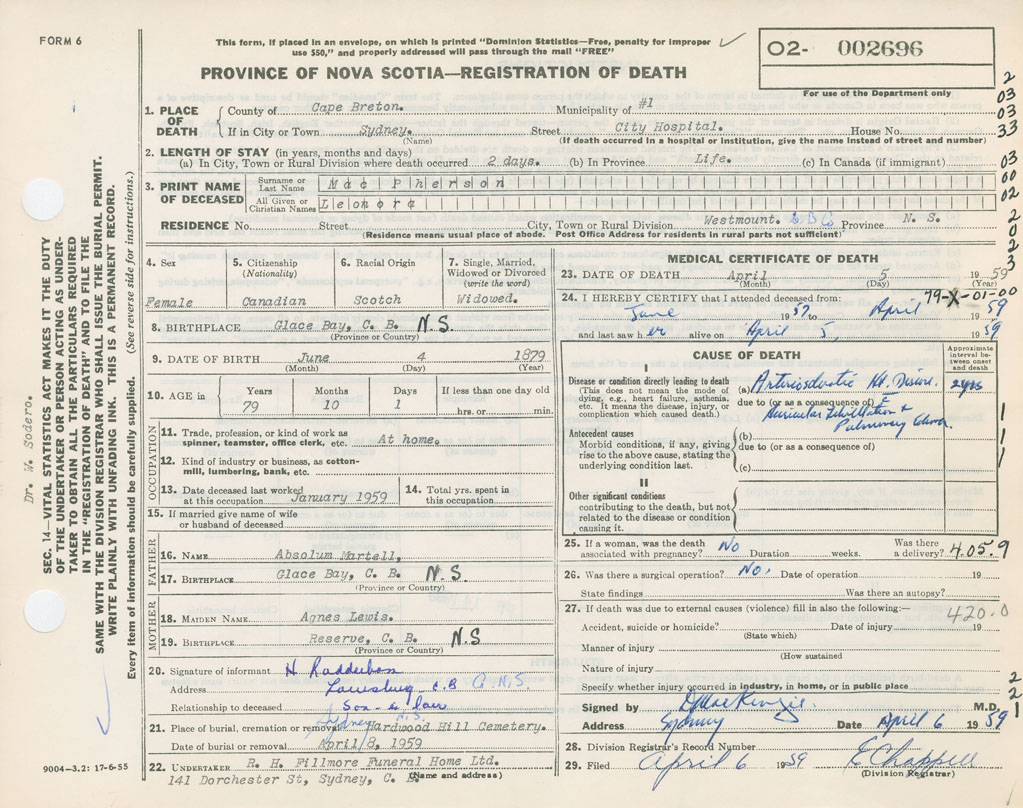 FORM 6
This form, if placed in an envelope, on which is printed "Dominion Statistics—Free, penalty for improper
use $50," and properly addressed will pass through the mail "FREE"
PROVINCE OF NOVA SCOTIA—REGISTRATION OF DEATH
02- 002696
For use of the Department only
1. PLACE OF DEATH County of Cape Breton. Municipality of #1
If in City or Town Sydney. Street City Hospital. House No.
(Name) (If death occurred in a hospital or institution, give the name instead of street and number)
2. LENGTH OF STAY (in years, months and days)
(a) In City, Town or Rural Division where death occurred 2 days. (b) In Province Life. (c) In Canada (if immigrant)
3. PRINT NAME OF DECEASED Surname or Last Name Mac Pherson
All Given or Christian Names Leonora
RESIDENCE No. Street City, Town or Rural Division Westmount. Province N. S.
(Residence means usual place of abode. Post Office Address for residents in rural parts not sufficient)
2
03
03
33
03
00
02
2
0
2
3
4. Sex Female
5. Citizenship (Nationality) Canadian
6. Racial Origin Scotch
7. Single, Married, Widowed or Divorced (write the word) Widowed.
8. BIRTHPLACE Glace Bay, C. B. N.S.
(Province or Country)
9. DATE OF BIRTH June 4 1879
(Month) (Day) (Year)
10. AGE in Years 79 Months 10 Days 1 If less than one day old hrs. or min.
OCCUPATION
11. Trade, profession, or kind of work as spinner, teamster, office clerk, etc. At home.
12. Kind of industry or business, as cotton-mill, lumbering, bank, etc.
13. Date deceased last worked at this occupation January 1959
14. Total yrs. spent in this occupation
15. If married give name of wife or husband of deceased
FATHER
16. NAME Absolum Martell.
17. BIRTHPLACE Glace Bay, C. B. N.S.
(Province or Country)
MOTHER
18. MAIDEN NAME Agnes Lewis.
19. BIRTHPLACE Reserve, C. B. N.S
(Province or Country)
20. Signature of informant H
Address Louisburg C.B N.S.
Relationship to deceased Son-in-law
21. Place of burial, cremation or removal Sydney N.S. Hardwood Hill Cemetery.
Date of burial or removal April 8, 1959
22. UNDERTAKER R. H. Fillmore Funeral Home Ltd.
141 Dorchester St, Sydney, C. B.
(Name and address)
MEDICAL CERTIFICATE OF DEATH
23. DATE OF DEATH April 5 1959
(Month) (Day) (Year)
79-X-01-00
24. I HEREBY CERTIFY that I attended deceased from:
June 1957 to April 1959
and last saw her alive on April 5, 1959
CAUSE OF DEATH
Approximate interval between onset and death
I
Disease or condition directly leading to death
(This does not mean the mode of dying, e.g., heart failure, asthenia, etc. It means the disease, injury, or complication which caused death.)
(a) Ht. Disease. 2 yrs
due to (or as a consequence of)
Auricular Fibrillation &
Pulmonary Edema
Antecedent causes
Morbid conditions, if any, giving rise to the above cause, stating the underlying condition last.
(b)
due to (or as a consequence of)
(c)
1
1
1
II
Other significant conditions
contributing to the death, but not related to the disease or condition causing it.
25. If a woman, was the death associated with pregnancy? No Duration weeks. Was there a delivery? 405.9
26. Was there a surgical operation? No. Date of operation 19
State findings Was there an autopsy?
27. If death was due to external causes (violence) fill in also the following:— 420.0
Accident, suicide or homicide? Date of injury 19
(State which)
Manner of injury
(How sustained
Nature of injury
Specify whether injury occurred in industry, in home, or in public place
2
2
1
Signed by MacKenzie M.D.
Address Sydney Date April 6 1959
28. Division Registrar's Record Number
29. Filed April 6 1959 E Chappell
(Division Registrar)
Dr. W. Sodero.
SEC. 14—VITAL STATISTICS ACT MAKES IT THE DUTY
OF THE UNDERTAKER OR PERSON ACTING AS UNDER-
TAKER TO OBTAIN ALL THE PARTICULARS REQUIRED
IN THE "REGISTRATION OF DEATH" AND TO FILE THE
SAME WITH THE DIVISION REGISTRAR WHO SHALL ISSUE THE BURIAL PERMIT.
WRITE PLAINLY WITH UNFADING INK. THIS IS A PERMANENT RECORD.
Every item of information should be carefully supplied. (See reverse side for instructions.)
9004-3.2: 17-6-55